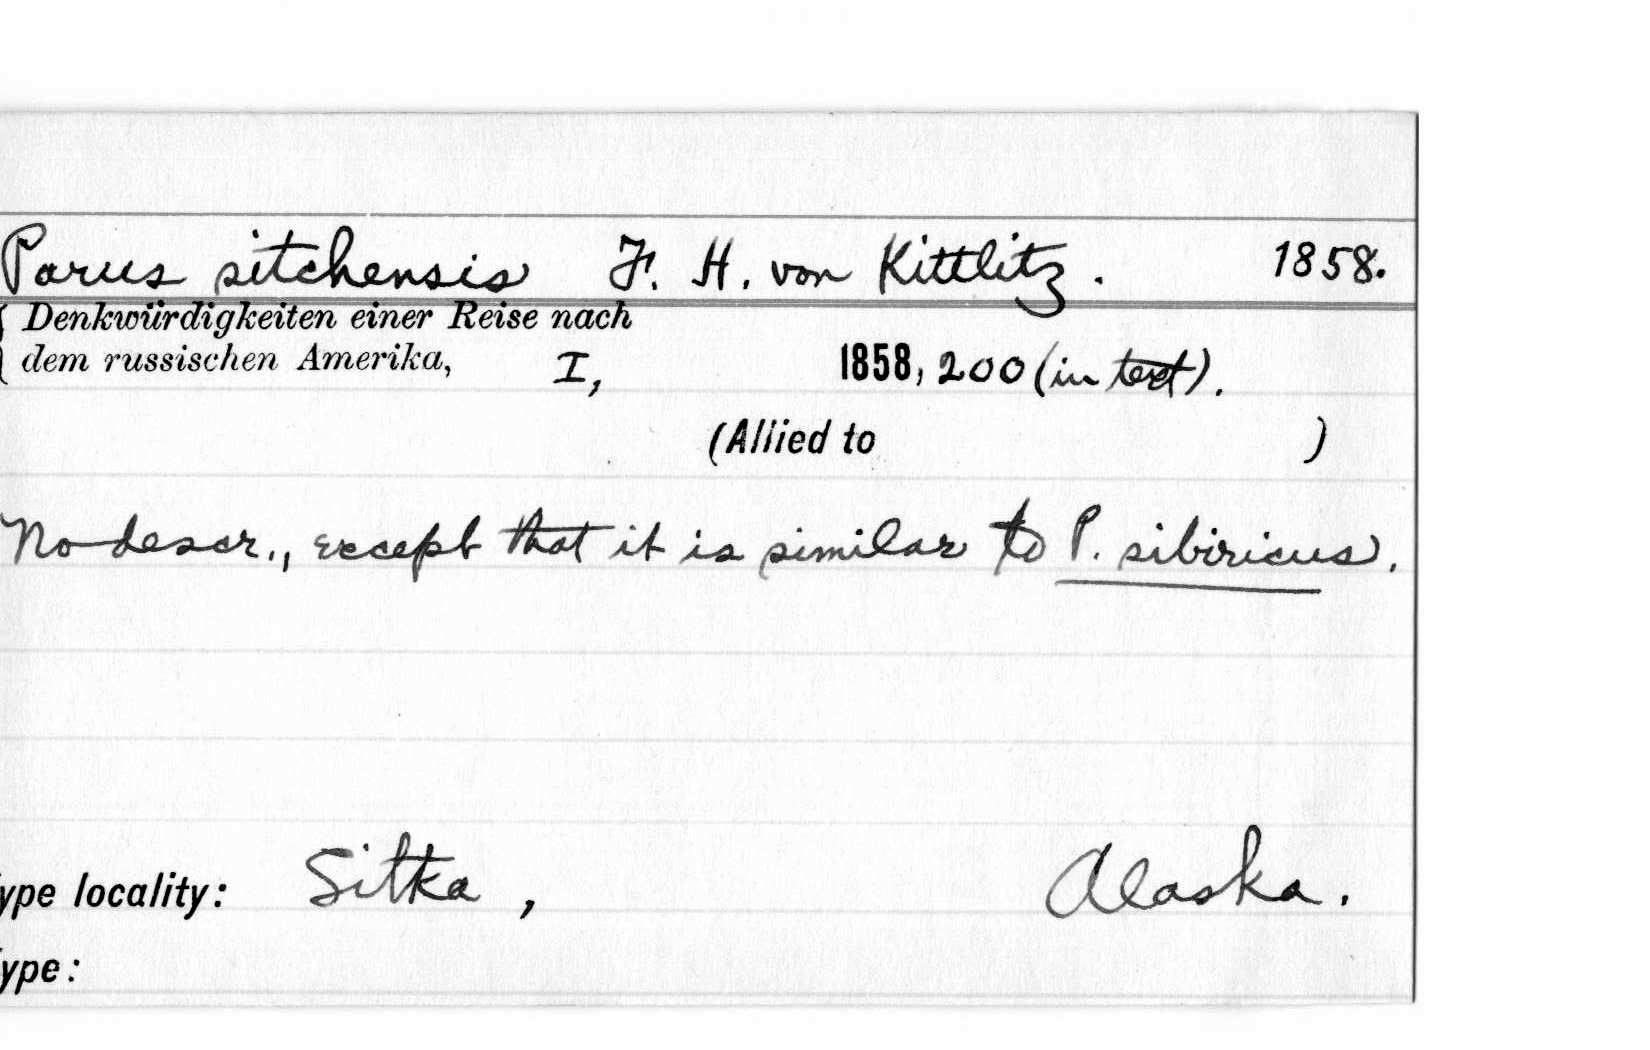 Parus sitchensis F. H. von Kittlitz. 1858.
{ Denkwürdigkeiten einer Reise nach
dem russischen Amerika, I, 1858, 200 (in text).
(Allied to )
No descr., except that it is similar to P. sibiricus.
ype locality: Sitka, Alaska.
ype: